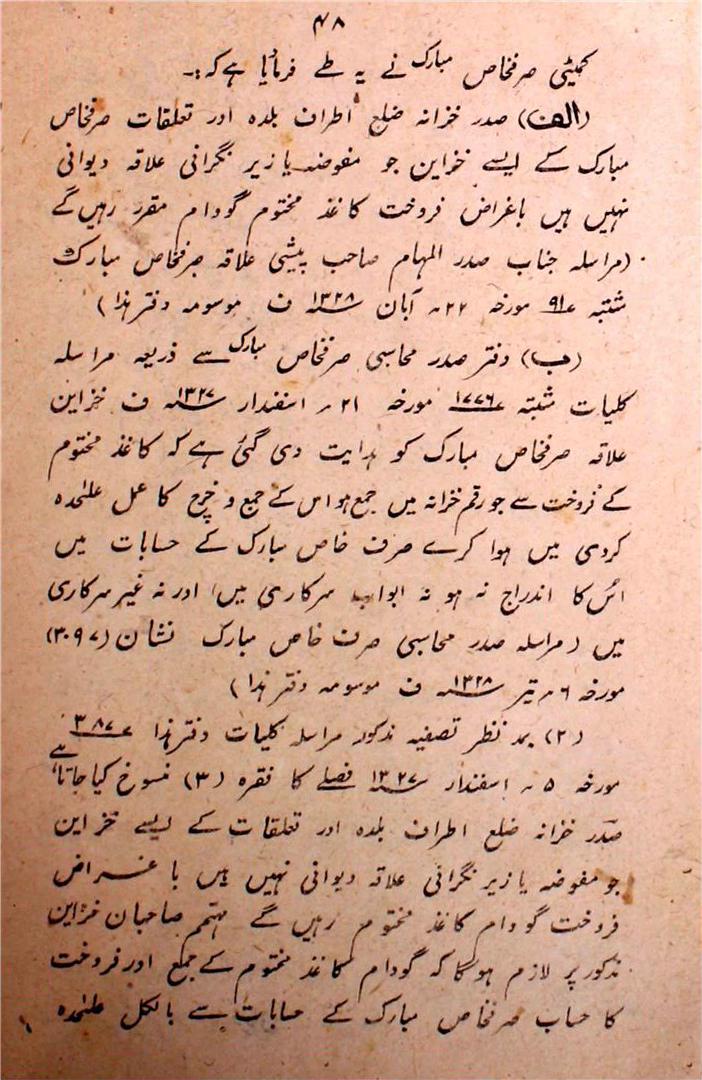 ۴۸
کمیٹی صرفخاص مبارک نے یہ طے فرمایا ہے کہ :۔
(الف) صدر خزانہ ضلع اطراف بلدہ اور تعلقات صرفخاص
مبارک کے ایسے خزاین جو مفوضہ یا زیر نگرانی علاقہ دیوانی
نہیں ہیں باغراض فروخت کاغذ مختوم گودام مقرر رہیں گے
(مراسلہ جناب صدر المہام صاحب پیشی علاقہ صرفخاص مبارک
شتبہ ۹۱ مورخہ ۲۲ ۔ آبان ۱۳۲۸ ف موسومہ دفتر ہذا)
(ب) دفتر صدر محاسبی صرفخاص مبارک سے ذریعہ مراسلہ
کلیات شتبہ ۱۷۷۶ مورخہ ۲۱ ۔ اسفندار ۱۳۲۷ ف خزاین
علاقہ صرفخاص مبارک کو ہدایت دی گئی ہے کہ کاغذ مختوم
کے فروخت سے جو رقم خزانہ میں جمع ہو اس کے جمع و خرچ کا عمل علٰحدہ
کردی میں ہوا کرے صرف خاص مبارک کے حسابات میں
اُس کا اندراج نہ ہو نہ ابواب سرکاری میں اور نہ غیر سرکاری
میں (مراسلہ صدر محاسبی صرف خاص مبارک نشان (۳۰۹۷)
مورخہ ۶ ۔ تیر ۱۳۲۸ ف موسومہ دفتر ہذا)
(۲) بمد نظر تصفیہ مذکور مراسلہ کلیات دفتر ہذا ۳۸۷
مورخہ ۵ ۔ اسفندار ۱۳۲۷ فصلے کا فقرہ (۳) منسوخ کیا جاتا ہے
صدر خزانہ ضلع اطراف بلدہ اور تعلقات کے ایسے خزاین
جو مفوضہ یا زیر نگرانی علاقہ دیوانی نہیں ہیں باغراض
فروخت گودام کاغذ مختوم رہیں گے مہتمم صاحبان خزاین
مذکور پر لازم ہوگا کہ گودام کاغذ مختوم کے جمع اور فروخت
کا حساب صرفخاص مبارک کے حسابات سے بالکل علٰحدہ